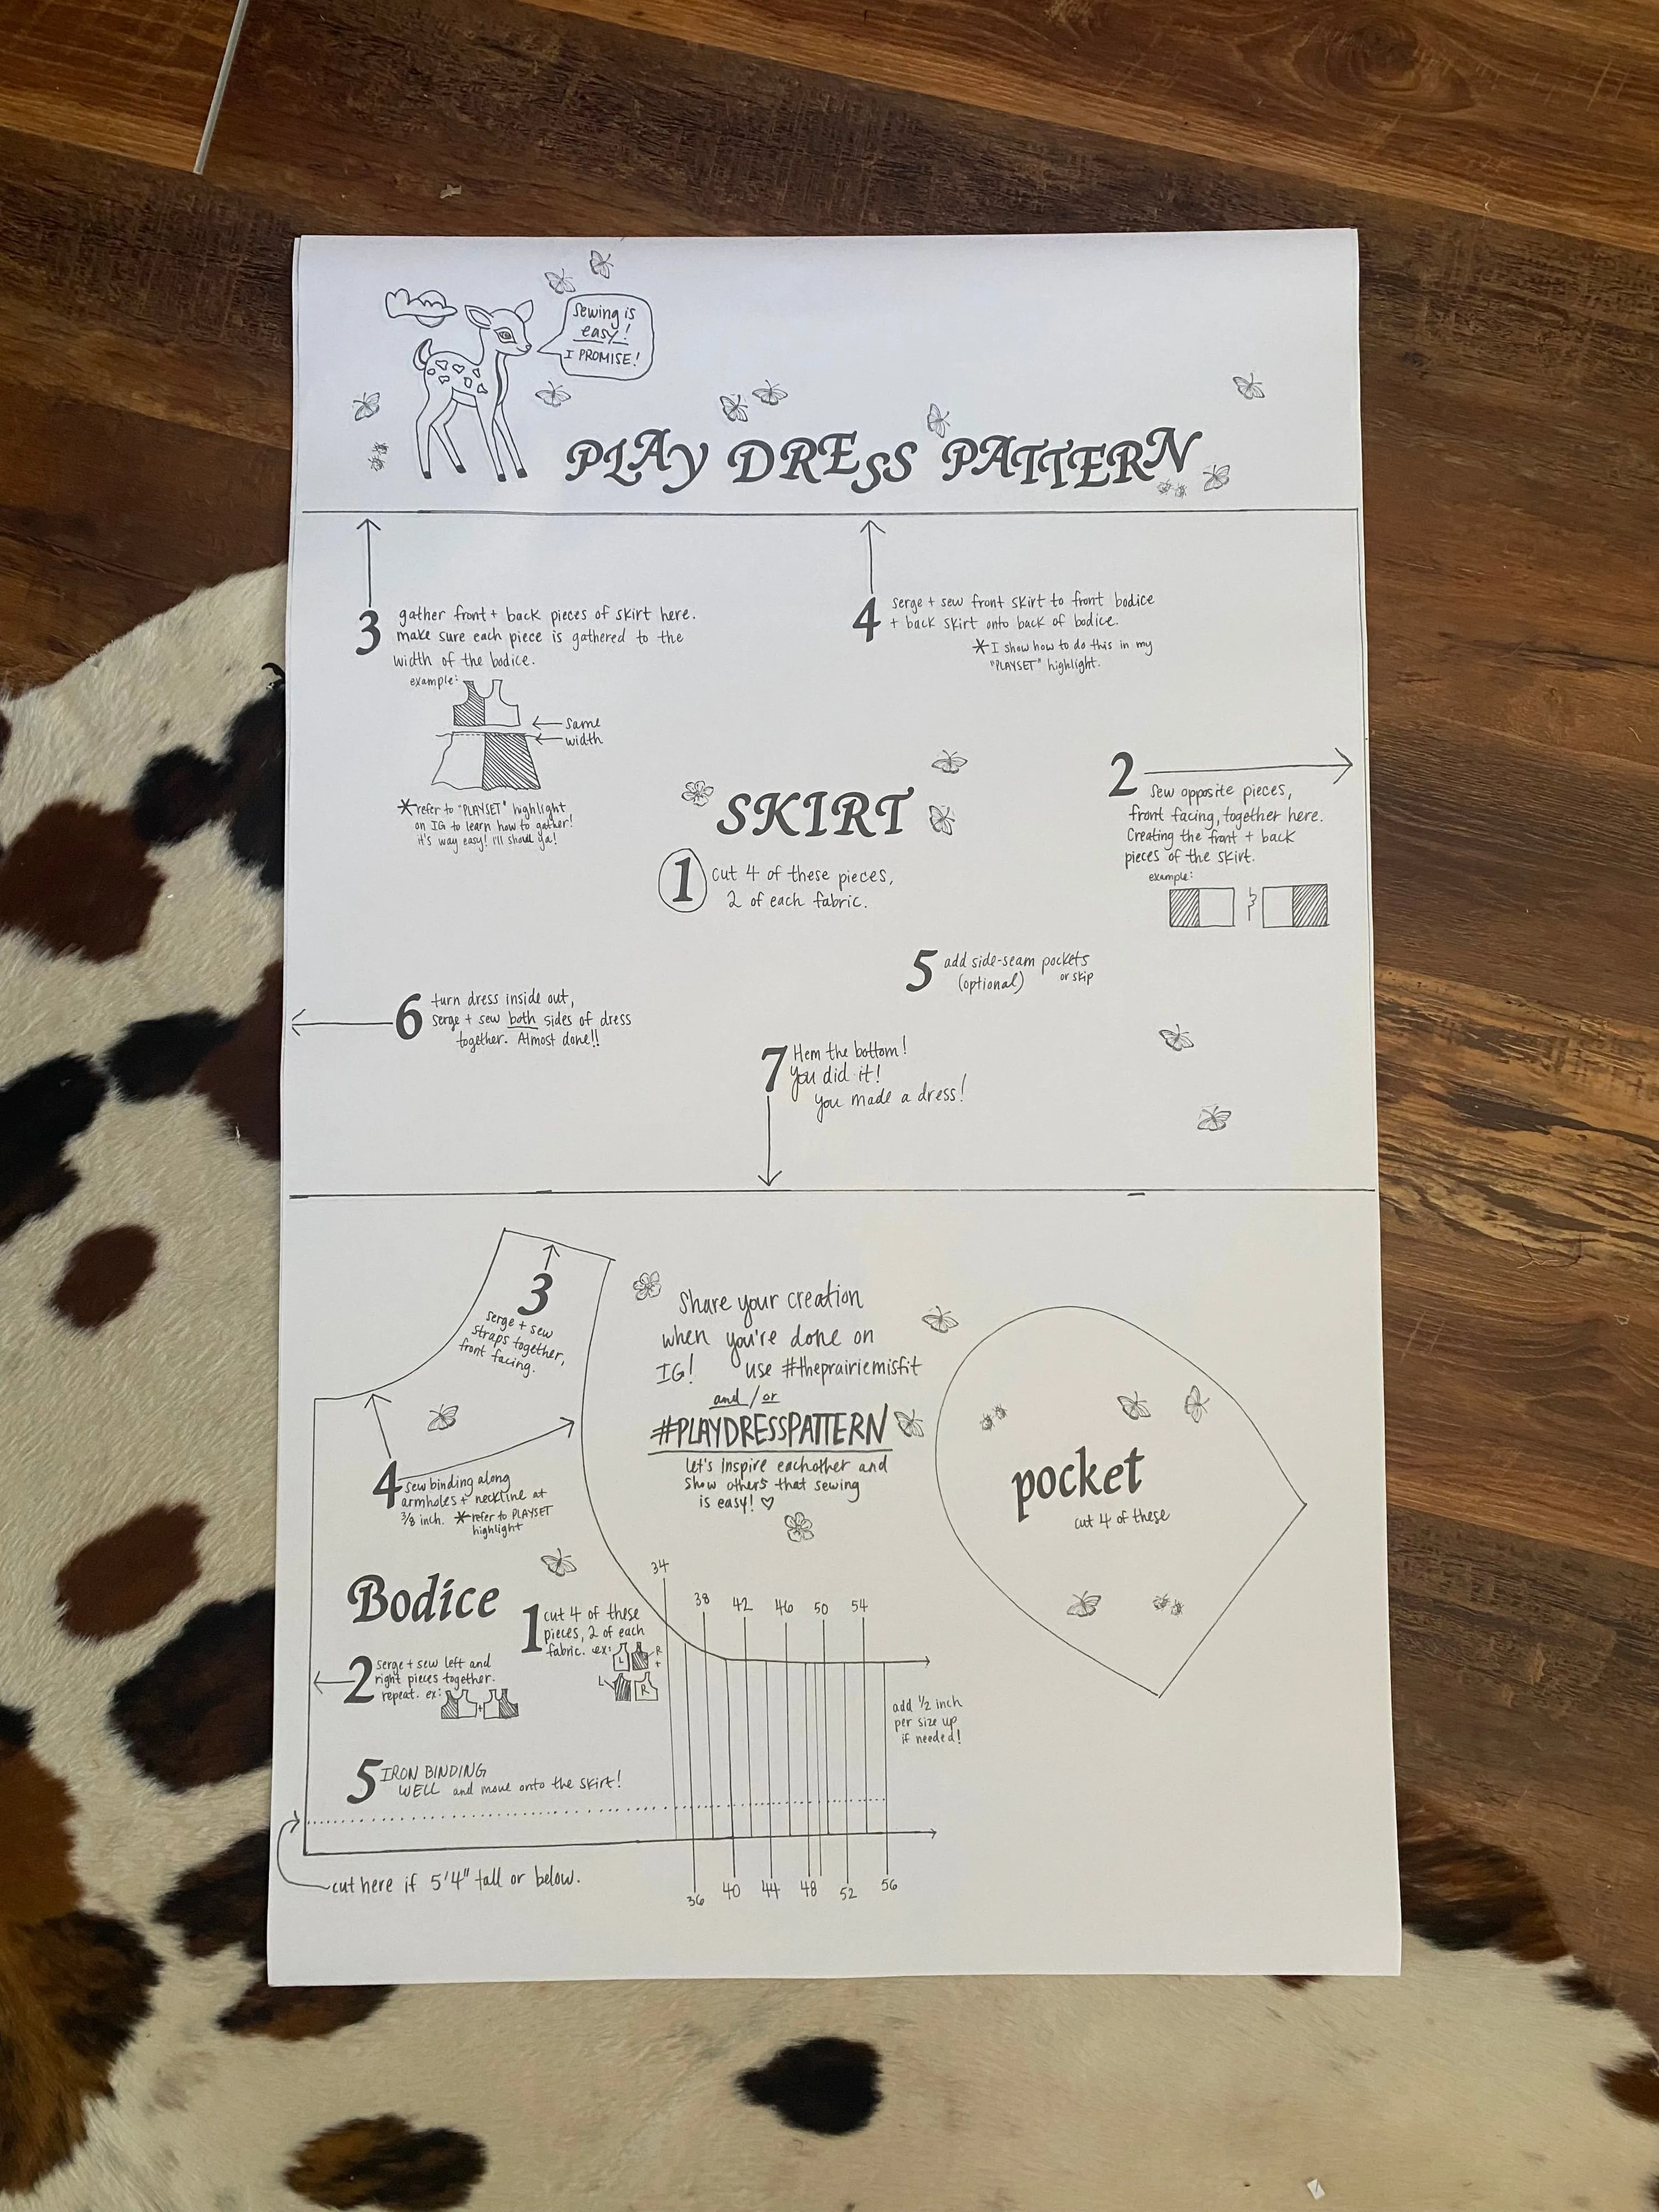 Sewing is
easy!
I PROMISE!
PLAY DRESS PATTERN
3 gather front + back pieces of skirt here.
make sure each piece is gathered to the
width of the bodice.
example:
same
width
*refer to "PLAYSET" highlight
on IG to learn how to gather!
it's way easy! I'll show ya!
4 serge + sew front skirt to front bodice
+ back skirt onto back of bodice.
*I show how to do this in my
"PLAYSET" highlight.
2 Sew opposite pieces,
front facing, together here.
Creating the front + back
pieces of the skirt.
example:
SKIRT
1 cut 4 of these pieces,
2 of each fabric.
5 add side-seam pockets
(optional) or skip
6 turn dress inside out,
serge + sew both sides of dress
together. Almost done!!
7 Hem the bottom!
you did it!
you made a dress!
3
serge + sew
straps together,
front facing.
4 sew binding along
armholes + neckline at
3/8 inch. *refer to PLAYSET
highlight
Share your creation
when you're done on
IG! use #theprairiemisfit
and/or
#PLAYDRESSPATTERN
let's inspire eachother and
show others that sewing
is easy! ♡
pocket
cut 4 of these
Bodice
1 cut 4 of these
pieces, 2 of each
fabric. ex:
L R
+
L R
2 serge + sew left and
right pieces together.
repeat. ex: +
5 IRON BINDING
WELL and move onto the skirt!
34 38 42 46 50 54
add 1/2 inch
per size up
if needed!
36 40 44 48 52 56
cut here if 5'4" tall or below.